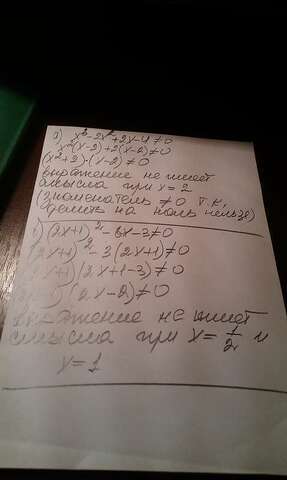 3) x³-2x²+2x-4≠0
x²(x-2)+2(x-2)≠0
(x²+2)·(x-2)≠0
выражение не имеет
смысла при x=2
(знаменатель ≠0 т.к.
делить на ноль нельзя)
(2x+1)²-6x-3≠0
(2x+1)²-3(2x+1)≠0
(2x+1)(2x+1-3)≠0
(2x-2)≠0
выражение не имеет
смысла при x=1/2 и
x=1